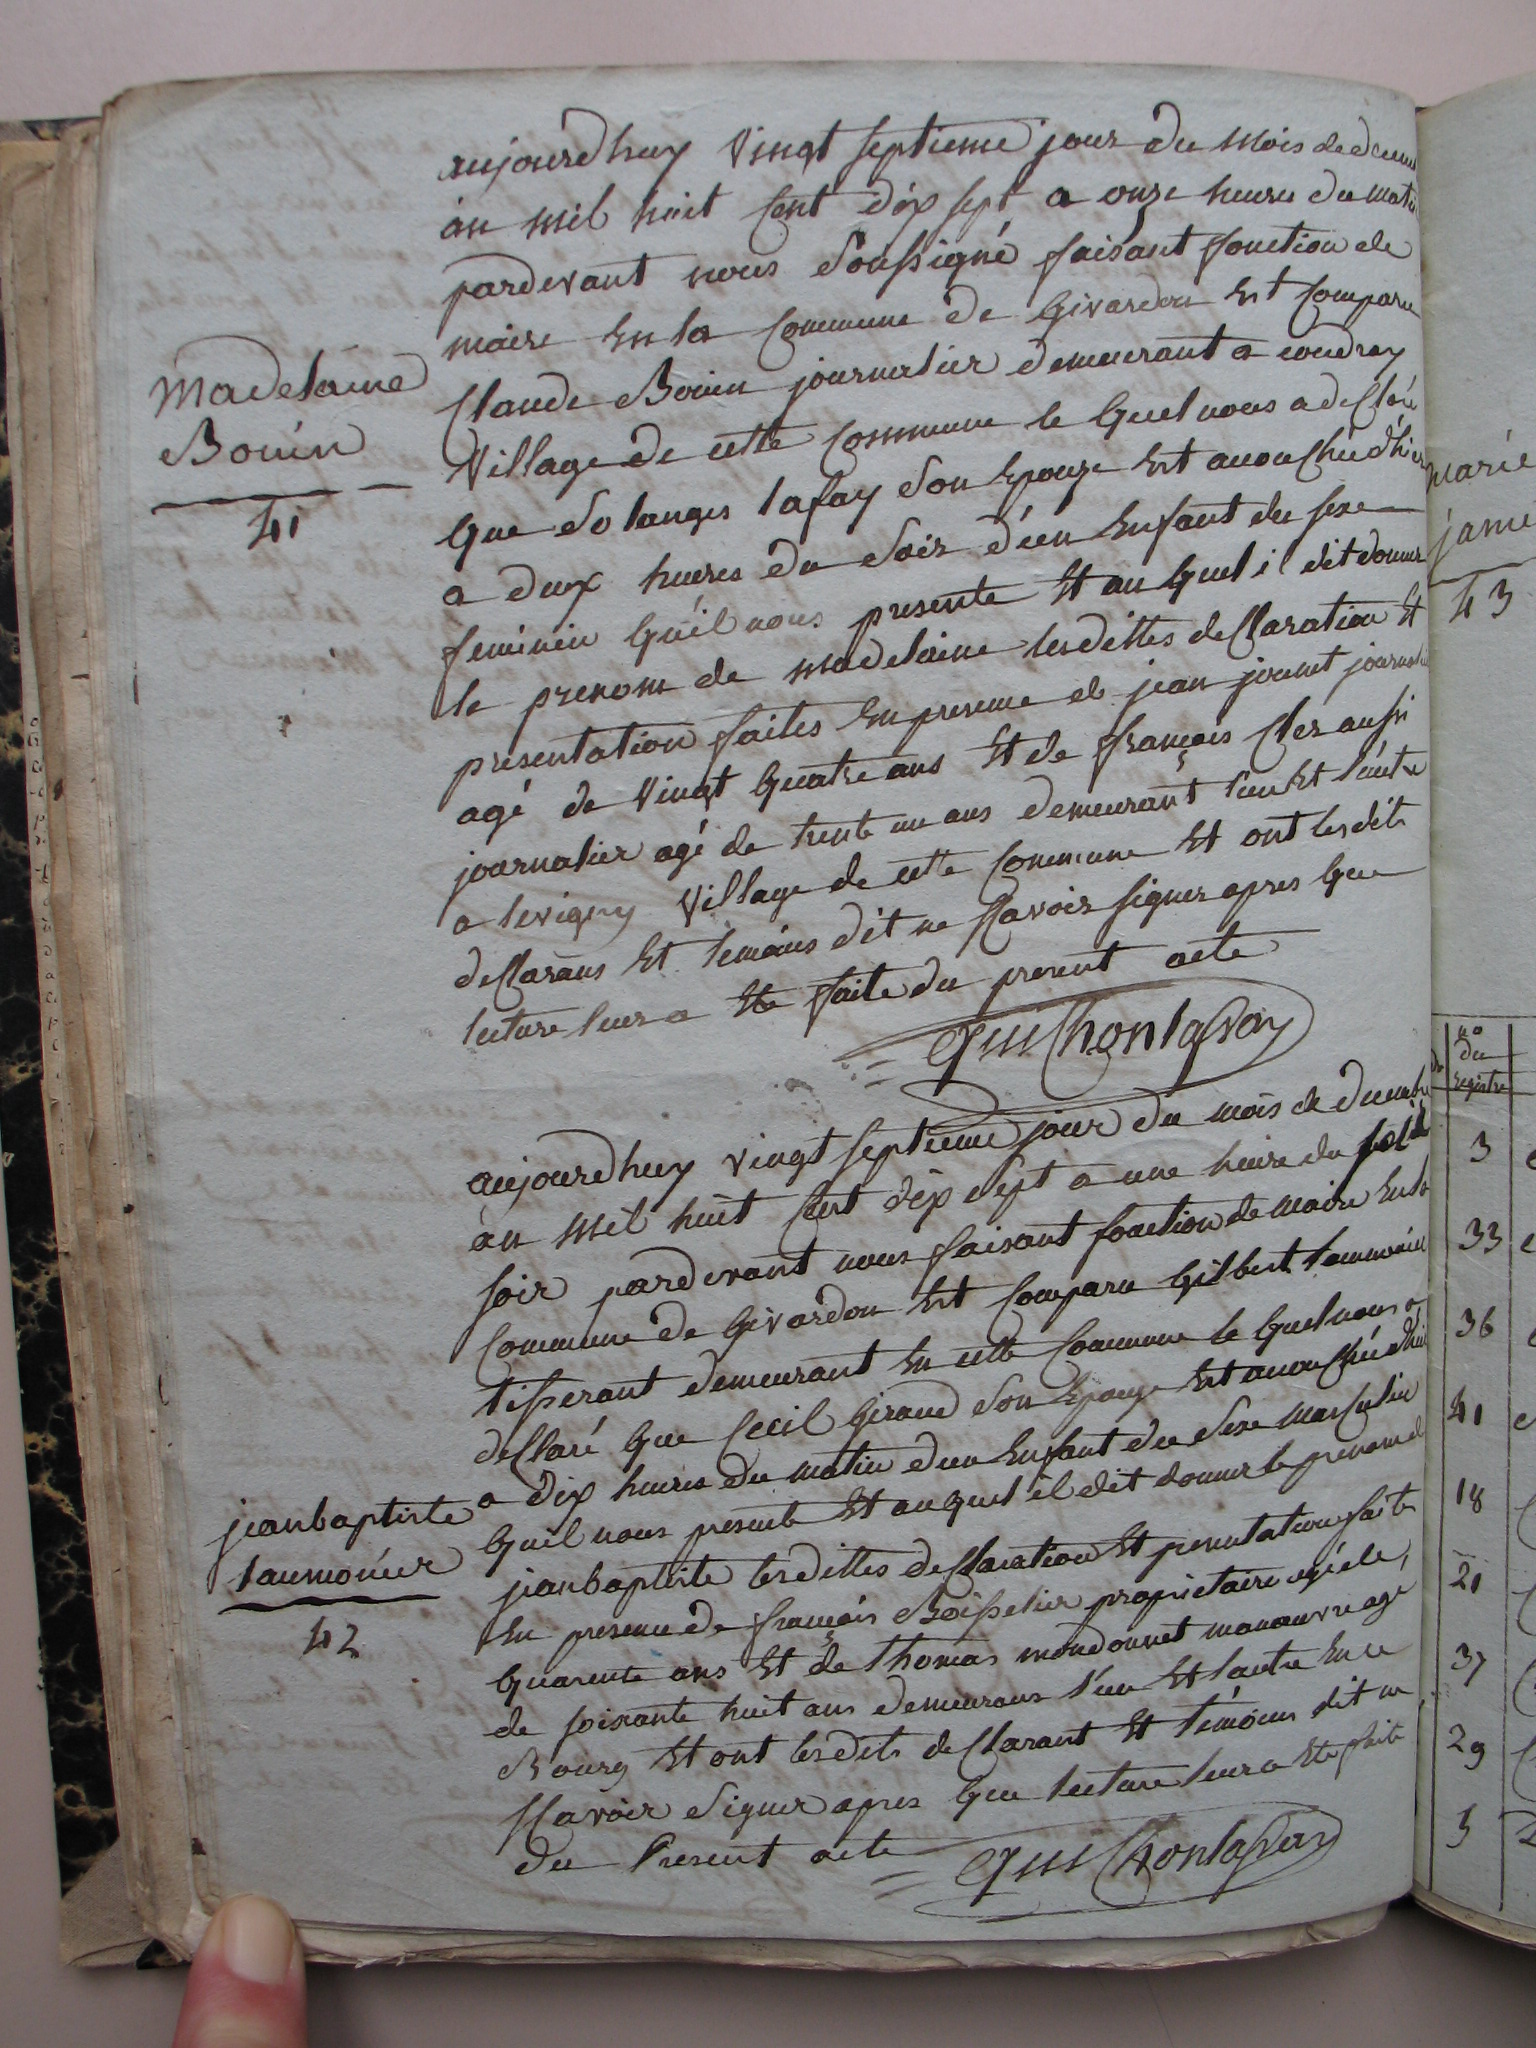 aujourdhuy vingt septieme jour du mois de decem
an mil huit cent dix sept a onze heures du matin
pardevant nous soussigné faisant fonction de
maire en la commune de Givardon est comparu
Claude Bouin journalier demeurant a coudray
village de cette commune le quel nous a declaré
que solanges lafay son epouze est accouchée d'hier
a deux heures du soir d'un enfant du sexe
feminin qu'il nous presente et au quel il dit donner
le prenom de madelaine lesdittes declaration et
presentation faites en presence de jean jouent journalier
agé de vingt quatre ans et de françois cler aussi
journalier agé de trente un ans demeurant l'un et l'autre
a levigny village de cette commune et ont lesdits
declarans et temoins dit ne scavoir signer apres que
lecture leur a ete faite du present acte
Madelaine
Bouin
41
aujourdhuy vingt septieme jour du mois de decembre
an mil huit cent dix sept a une heure du
soir pardevant nous faisant fonction de maire en la
commune de Givardon est comparu Gilbert laumonier
tisserant demeurant en cette commune le quel nous a
declaré que Cecil Giraud son epouze est accouchée d'hui
a dix heures du matin d'un enfant du sexe masculin
quil nous presente et auquel il dit donner le prenom de
jeanbaptiste lesdittes declaration et presentation faite
en presence de françois Boisselier proprietaire agé de
quarente ans et de thomas mondonnet manoeuvre agé
de soixante huit ans demeurans l'un et l'autre en ce
Bourg et ont lesdits declarant et témoins dit ne
scavoir signer apres que lecture leur a ete faite
du present acte
jeanbaptiste
laumonier
42
marie
43
no
du
registre
3
33
36
41
18
21
37
29